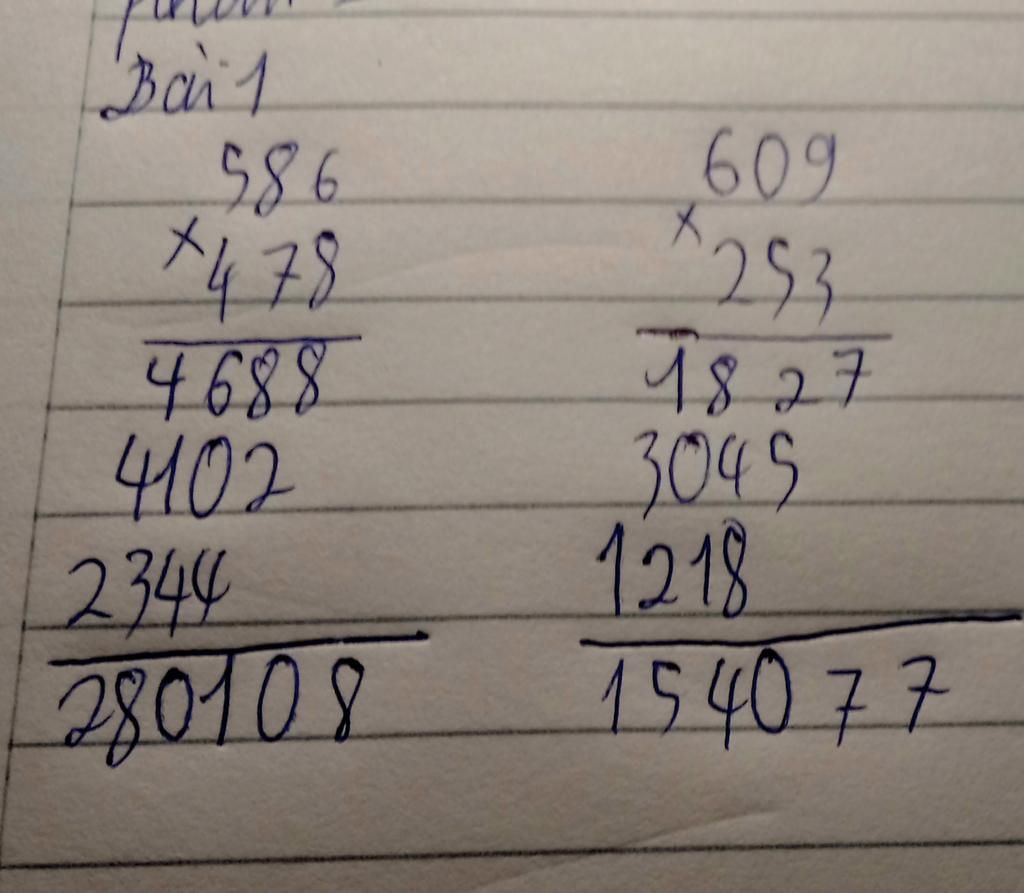 Bài 1
586 609
× ×
478 253
4688 1827
4102 3045
2344 1218
280108 154077